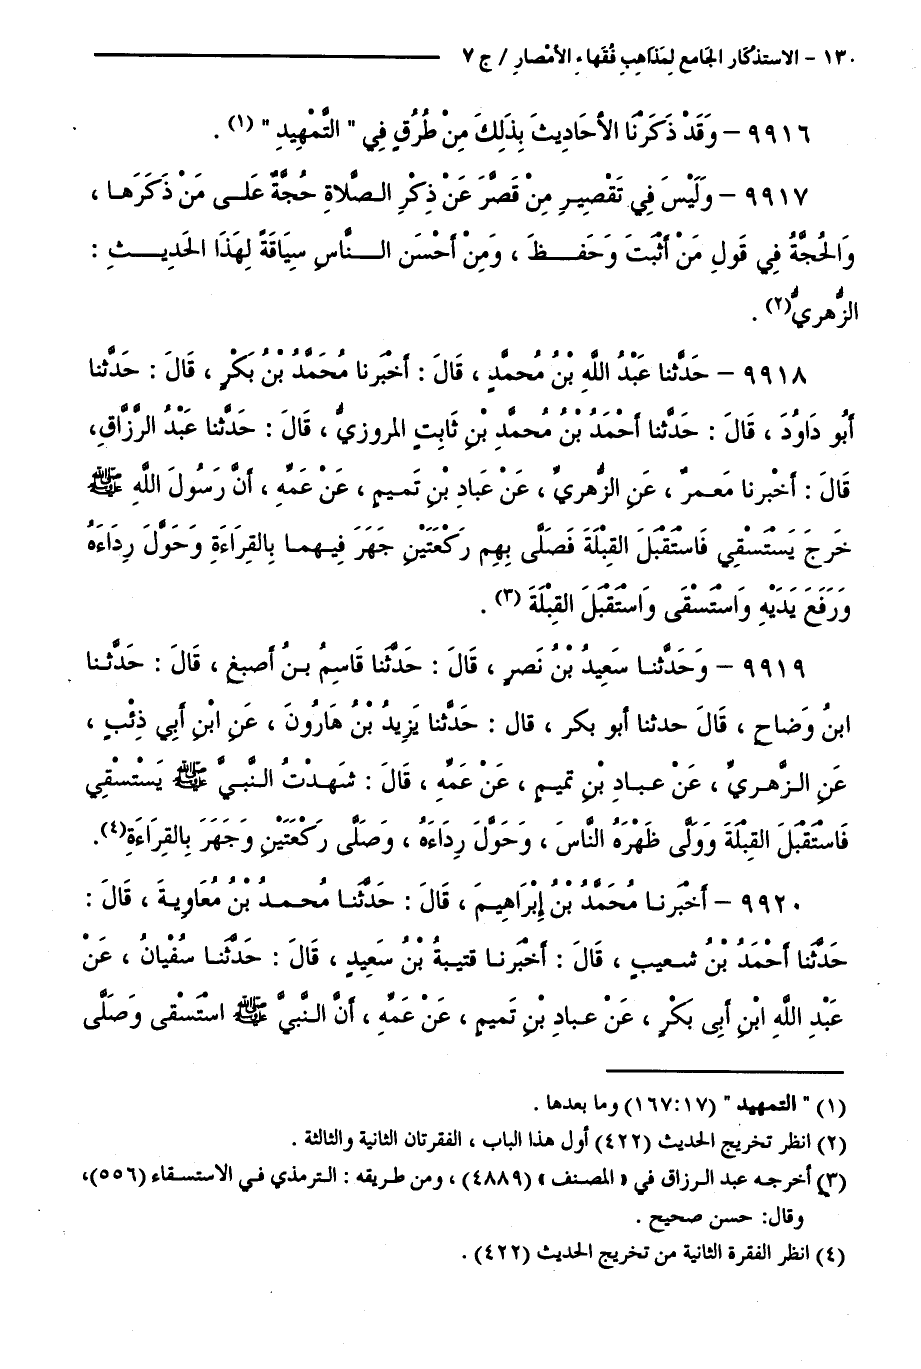 ١٣٠ - الاستذكار الجامع لِمَذاهِبِ فُقَهاءِ الأمْصارِ / ج ٧
٩٩١٦ - وَقَدْ ذَكَرْنَا الأحَادِيثَ بِذَلِكَ مِنْ طُرُقٍ فِي " التَّمْهِيدِ " (١) .
٩٩١٧ - وَلَيْسَ فِي تَقْصِيرِ مِنْ قَصَّرَ عَنْ ذِكْرِ الصَّلاةِ حُجَّةٌ عَلَى مَنْ ذَكَرَهَا ،
وَالحُجَّةُ فِي قَولِ مَنْ أثْبَتَ وَحَفِظَ ، وَمِنْ أحْسَنِ النَّاسِ سِيَاقَةً لِهَذَا الحَدِيثِ :
الزُّهريُّ(٢) .
٩٩١٨ - حَدَّثنا عَبْدُ اللَّهِ بْنُ مُحمَّدٍ ، قَالَ : أخْبَرنا مُحَمَّدُ بْنُ بَكْرٍ ، قَالَ : حَدَّثنا
أبُو دَاوُدَ ، قَالَ : حَدَّثنا أحْمَدُ بْنُ مُحمَّدِ بْنِ ثَابِتٍ المروزيُّ ، قَالَ : حَدَّثنا عَبْدُ الرَّزَّاقِ،
قَالَ : أخْبَرنا مَعمرٌ ، عَنِ الزُّهريِّ ، عَنْ عَبادِ بْنِ تَميمٍ ، عَنْ عَمِّهِ ، أنَّ رَسُولَ اللَّهِ ﷺ
خَرجَ يَسْتَسْقِي فَاسْتَقْبَلَ القِبْلَةَ فَصَلَّى بِهِم رَكْعَتَيْنِ جَهَرَ فِيهما بِالقِرَاءَةِ وَحَوَّلَ رِدَاءَهُ
وَرَفَعَ يَدَيْهِ وَاسْتَسْقَى وَاسْتَقْبَلَ القِبْلَةَ (٣) .
٩٩١٩ - وَحَدَّثنا سَعِيدُ بْنُ نَصرٍ ، قَالَ : حَدَّثَنا قَاسِمُ بنُ أصبغ ، قَالَ : حَدَّثنا
ابنُ وَضاحٍ ، قَالَ حدثنا أبو بكر ، قال : حَدَّثنا يَزِيدُ بْنُ هَارُونَ ، عَنِ ابْنِ أبِي ذِئْبٍ ،
عَنِ الزَّهريِّ ، عَنْ عبادِ بْنِ تميمٍ ، عَنْ عَمِّهِ ، قَالَ : شَهِدْتُ النَّبيَّ ﷺ يَسْتَسْقِي
فَاسْتَقْبَلَ القِبْلَةَ وَوَلَّى ظَهْرَهُ النَّاسَ ، وَحَوَّلَ رِدَاءَهُ ، وَصَلَّى رَكْعَتَيْنِ وَجَهَرَ بِالقِرَاءَةِ(٤).
٩٩٢٠ - أخْبَرنا مُحَمَّدُ بْنُ إبْرَاهِيمَ ، قَالَ : حَدَّثَنا مُحمدُ بْنُ مُعَاوِيةَ ، قَالَ :
حَدَّثَنا أحْمَدُ بْنُ شعيبٍ ، قَالَ : أخْبَرنا قتيبةُ بْنُ سَعيدٍ ، قَالَ : حَدَّثَنا سُفْيانُ ، عَنْ
عَبْدِ اللَّهِ ابْنِ أبِى بَكْرٍ ، عَنْ عبادِ بْنِ تَميمٍ ، عَنْ عَمِّهِ ، أنَّ النَّبيَّ ﷺ اسْتَسْقى وَصَلَّى
(١) " التمهيد " (١٦٧:١٧) وما بعدها .
(٢) انظر تخريج الحديث (٤٢٢) أول هذا الباب ، الفقرتان الثانية والثالثة .
(٣) أخرجه عبد الرزاق في « المصنف » (٤٨٨٩) ، ومن طريقه : الترمذي في الاستسقاء (٥٥٦)،
وقال: حسن صحيح .
(٤) انظر الفقرة الثانية من تخريج الحديث (٤٢٢) .